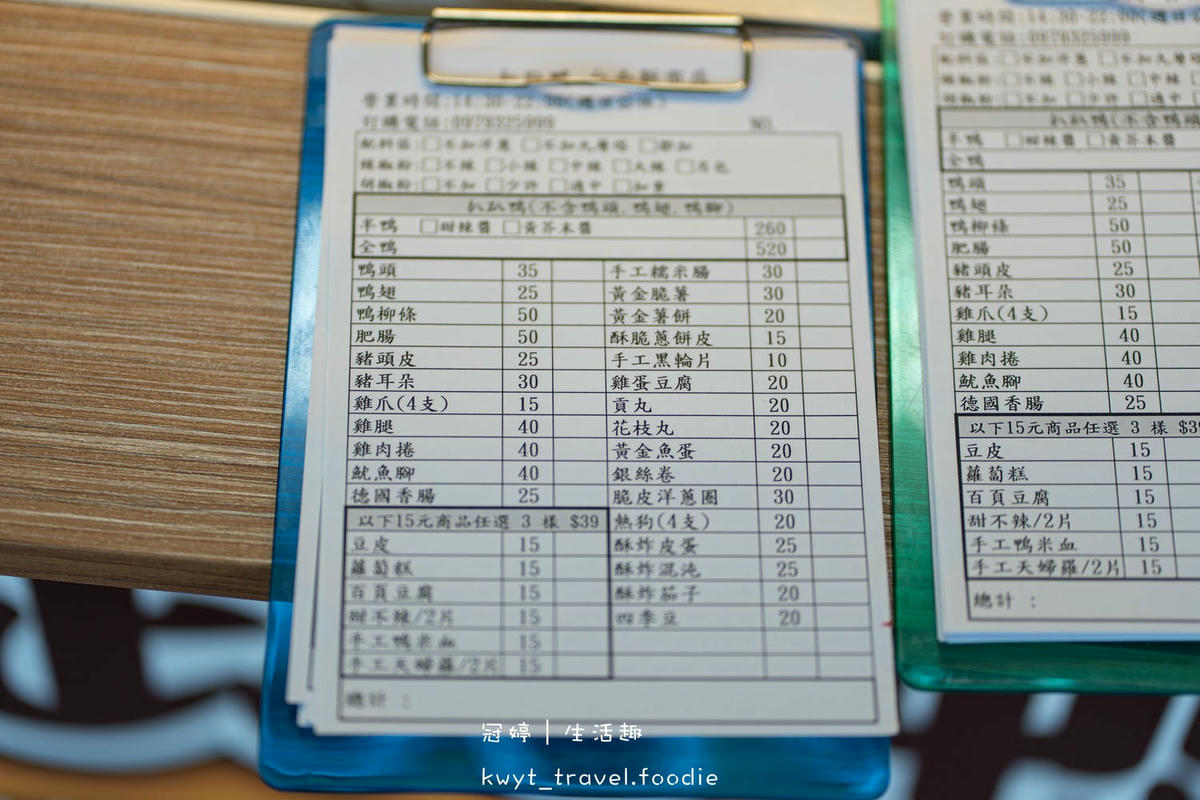 營業時間:14:30-22:00(週日公休)
訂購電話:0979325999 NO.
配料區:□不加洋蔥 □不加九層塔 □都加
辣椒粉:□不辣 □小辣 □中辣 □大辣 □另包
胡椒粉:□不加 □少許 □適中 □加重
趴趴鴨(不含鴨頭.鴨翅.鴨腳)
半鴨 □甜辣醬 □黃芥末醬 260
全鴨 520
鴨頭 35 手工糯米腸 30
鴨翅 25 黃金脆薯 30
鴨柳條 50 黃金薯餅 20
肥腸 50 酥脆蔥餅皮 15
豬頭皮 25 手工黑輪片 10
豬耳朵 30 雞蛋豆腐 20
雞爪(4支) 15 貢丸 20
雞腿 40 花枝丸 20
雞肉捲 40 黃金魚蛋 20
魷魚腳 40 銀絲卷 20
德國香腸 25 脆皮洋蔥圈 30
以下15元商品任選 3 樣 $39 熱狗(4支) 20
豆皮 15 酥炸皮蛋 25
蘿蔔糕 15 酥炸混沌 25
百頁豆腐 15 酥炸茄子 20
甜不辣/2片 15 四季豆 20
手工鴨米血 15
手工天婦羅/2片 15
總計 :
訂購電話:0979325999
配料區:□不加洋蔥 □不加九層塔
辣椒粉:□不辣 □小辣 □中辣
胡椒粉:□不加 □少許 □適中
趴趴鴨(不含鴨頭
半鴨 □甜辣醬 □黃芥末醬
全鴨
鴨頭 35
鴨翅 25
鴨柳條 50
肥腸 50
豬頭皮 25
豬耳朵 30
雞爪(4支) 15
雞腿 40
雞肉捲 40
魷魚腳 40
德國香腸 25
以下15元商品任選 3 樣 $39
豆皮 15
蘿蔔糕 15
百頁豆腐 15
甜不辣/2片 15
手工鴨米血 15
手工天婦羅/2片 15
總計 :
冠婷｜生活趣
kwyt_travel.foodie